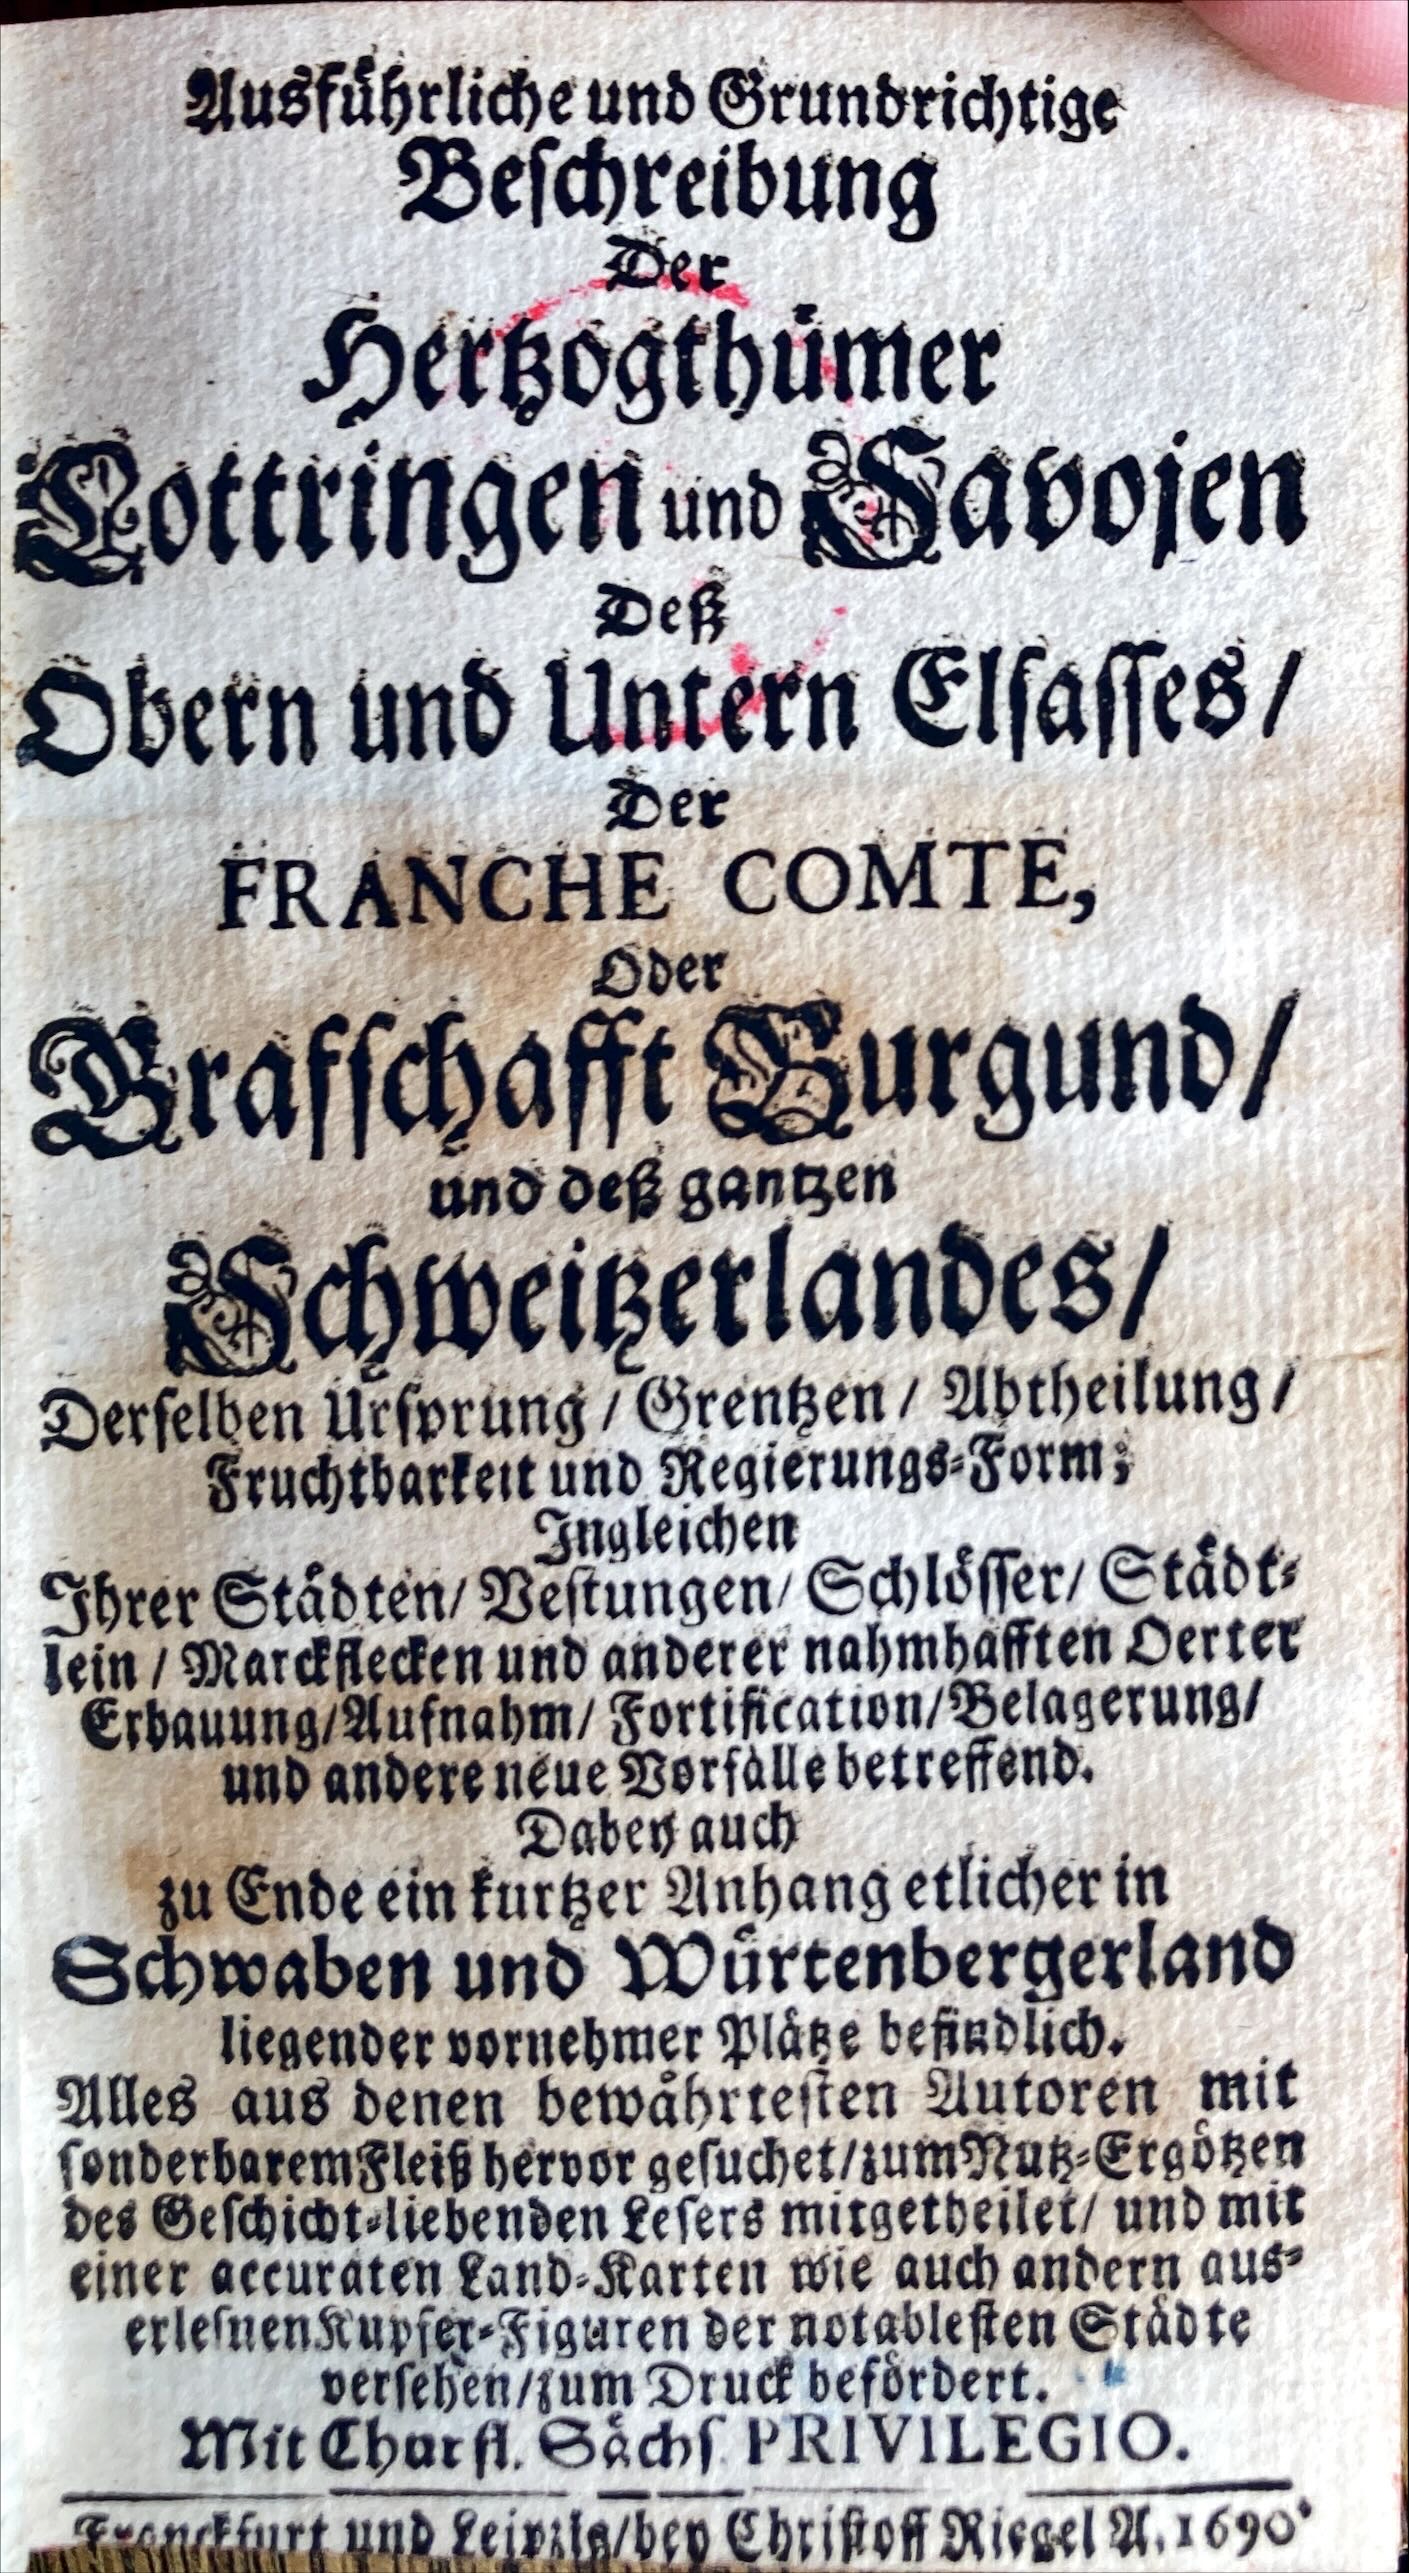 Ausführliche und Grundrichtige
Beschreibung
Der
Hertzogthümer
Lottringen und Savojen
Deß
Obern und Untern Elsasses/
Der
FRANCHE COMTE,
Oder
Grafschafft Burgund/
und deß gantzen
Schweitzerlandes/
Derselben Ursprung/ Grentzen/ Abtheilung/
Fruchtbarkeit und Regierungs-Form;
Ingleichen
Ihrer Städten/ Vestungen/ Schlösser/ Städt-
lein/ Marckflecken und anderer nahmhafften Oerter
Erbauung/Aufnahm/ Fortification/Belagerung/
und andere neue Vorfälle betreffend.
Dabey auch
zu Ende ein kurtzer Anhang etlicher in
Schwaben und Würtenbergerland
liegender vornehmer Plätze befindlich.
Alles aus denen bewährtesten Autoren mit
sonderbarem Fleiß hervor gesuchet/zum Nutz-Ergötzen
des Geschicht-liebenden Lesers mitgetheilet/ und mit
einer accuraten Land-Karten wie auch andern aus-
erlesnen Kupfer-Figuren der notablesten Städte
versehen/zum Druck befördert.
Mit Churfl. Sächs. PRIVILEGIO.
Franckfurt und Leipzig/bey Christoff Riegel A. 1690.